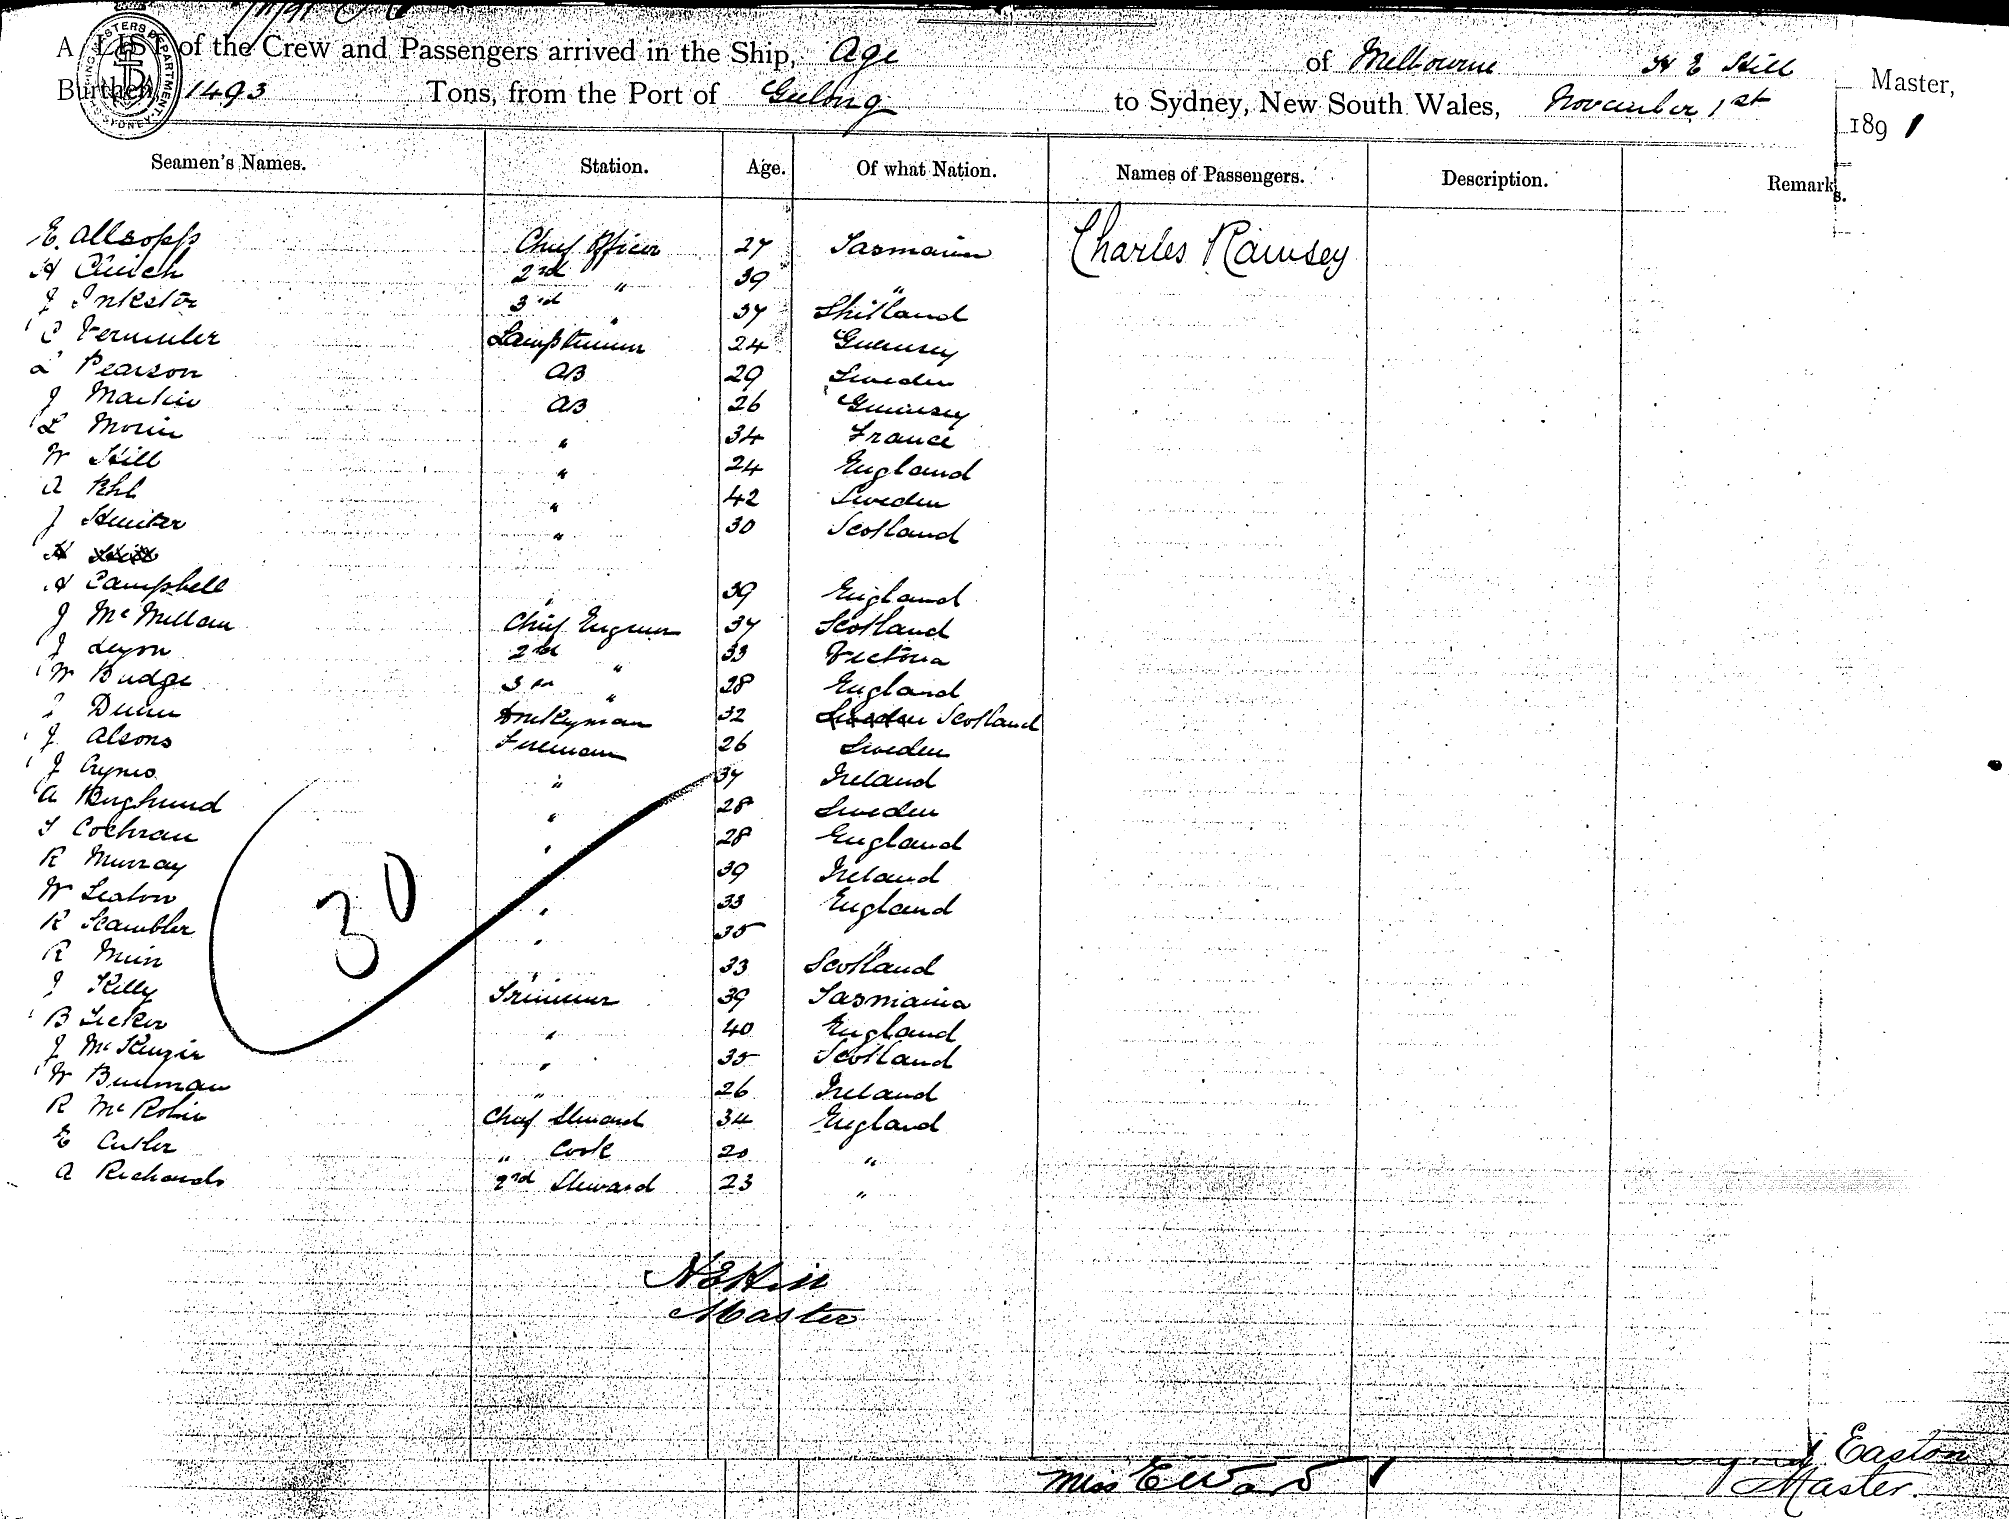 A LIST of the Crew and Passengers arrived in the Ship, Age of Melbourne H E Hill Master,
Burthen 1493 Tons, from the Port of Geelong to Sydney, New South Wales, November 1st 1891
Seamen's Names. Station. Age. Of what Nation. Names of Passengers. Description. Remarks.
E. Allsopp Chief Officer 27 Tasmania Charles Ramsey
H 2nd " 39 "
J Inkster 3rd " 37 Shetland
C Vermuler Lamptrimmer 24 Guernsey
L Pearson AB 29 Sweden
J Martin AB 26 Guernsey
L Morin " 34 France
W Hill " 24 England
A " 42 Sweden
J Hunter " 30 Scotland
H Hill
H Campbell " 39 England
J McMillan Chief Engineer 37 Scotland
J Lyon 2nd " 33 Victoria
W Budge 3rd " 28 England
Dunn Donkeyman 32 Sweden Scotland
J Alsons Fireman 26 Sweden
J " 37 Ireland
A Berglund " 28 Sweden
T Cochran " 28 England
R Murray 39 Ireland
W Seaton " 33 England
R Scambler " 35 "
R Muir " 33 Scotland
J Kelly Trimmer 39 Tasmania
B " 40 England
J McKenzie " 35 Scotland
W " 26 Ireland
R McRobie Chief Steward 34 England
E Cutler " Cook 20 "
A Richards 2nd Steward 23 "
30
H E Hill
Master
Easton
Master.
Miss E Ward 1